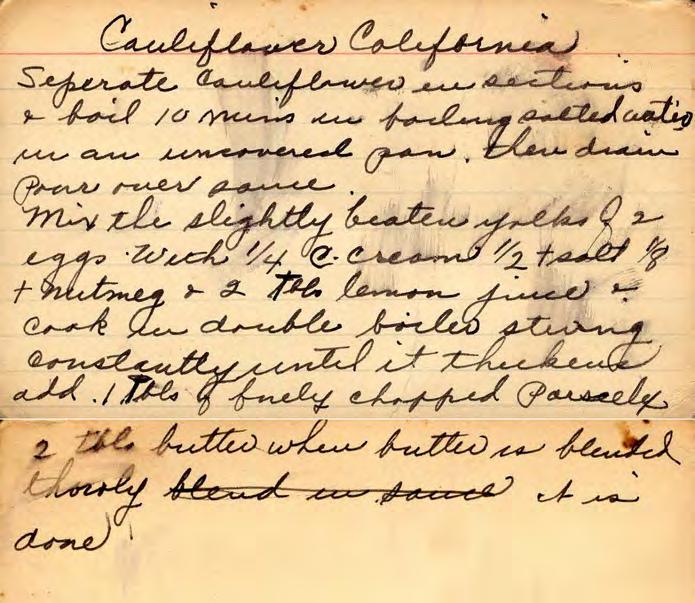 Cauliflower California
Seperate Cauliflower in sections
& boil 10 mins in boiling salted water
in an uncovered pan. then drain
Pour over sauce.
Mix the slightly beaten yolks of 2
eggs. With 1/4 C. cream 1/2 t salt 1/8
t nutmeg & 2 Tbls lemon juice &
cook in double boiler stiring
constantly until it thickens
add. 1 Tbls of finely chopped Parsely
2 tbls butter when butter is blended
thoroly blend in sauce it is
done